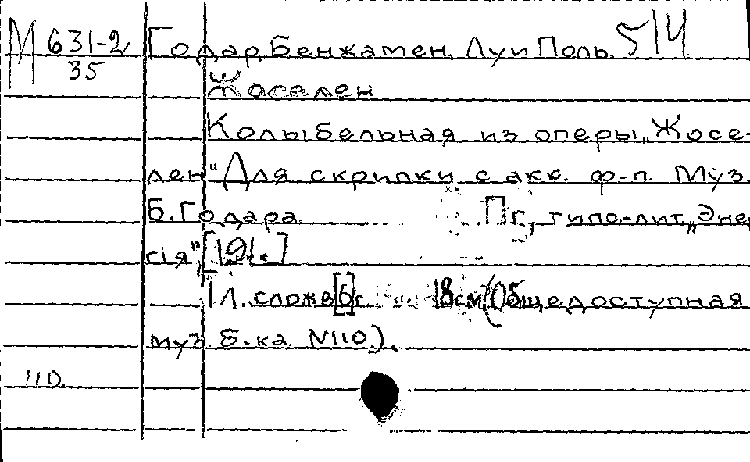 М 631-2/35 Годар, Бенжамен Луи Поль. 514
Жоселен
Колыбельная из оперы „Жосе-
лен" Для скрипки с акк. ф-п. Муз.
Б. Годара Пг., типо-лит. „Эне
гія", [191.]
1 л. слож. [6] с. 18 см (Общедоступная
муз. б-ка №110).
110.